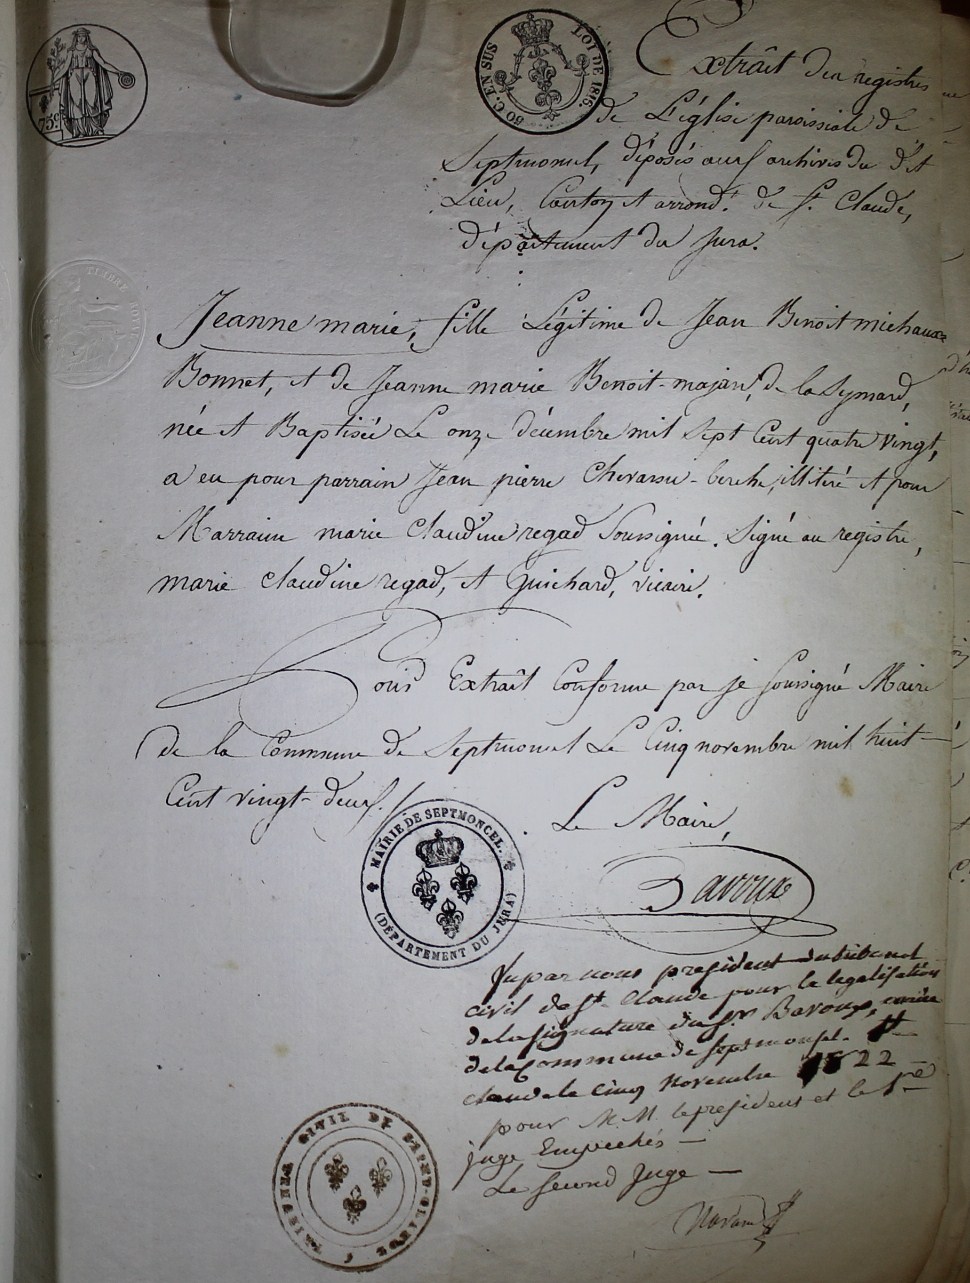 75c
50 C. EN SUS LOI DE 1816.
TIMBRE ROYAL
Extrâit des registres
de L'église paroissiale de
Septmoncel, déposés aux archives du dit
Lieu, Canton et arrond.t de St. Claude,
département du Jura.
Jeanne marie, fille Légitime de Jean Benoit michaux
Bonnet, et de Jeanne marie Benoit-majan, de la Symard,
née et Baptisée Le onze décembre mil sept Cent quatre vingt,
a eu pour parrain Jean pierre Chevassu-berche, illitéré et pour
Marraine marie claudine regad Soussignée. Signé au registre,
marie claudine regad, et Guichard, vicaire.
Pour Extrâit Conforme par je soussigné Maire
de la Commune de Septmoncel Le Cinq novembre mil huit-
Cent vingt-deux./.
Le Maire,
MAIRIE DE SEPTMONCEL.
(DÉPARTEMENT DU JURA)
Bavoux
Vu par nous president du tribunal
civil de St. Claude pour la legalisation
de la signature du sr. Bavoux, maire
de la Commune de septmonsel. St
claude le cinq novembre 1822
pour M.M. le president et le 1re
juge Empechés —
Le second Juge —
TRIBUNAL CIVIL DE SAINT-CLAUDE